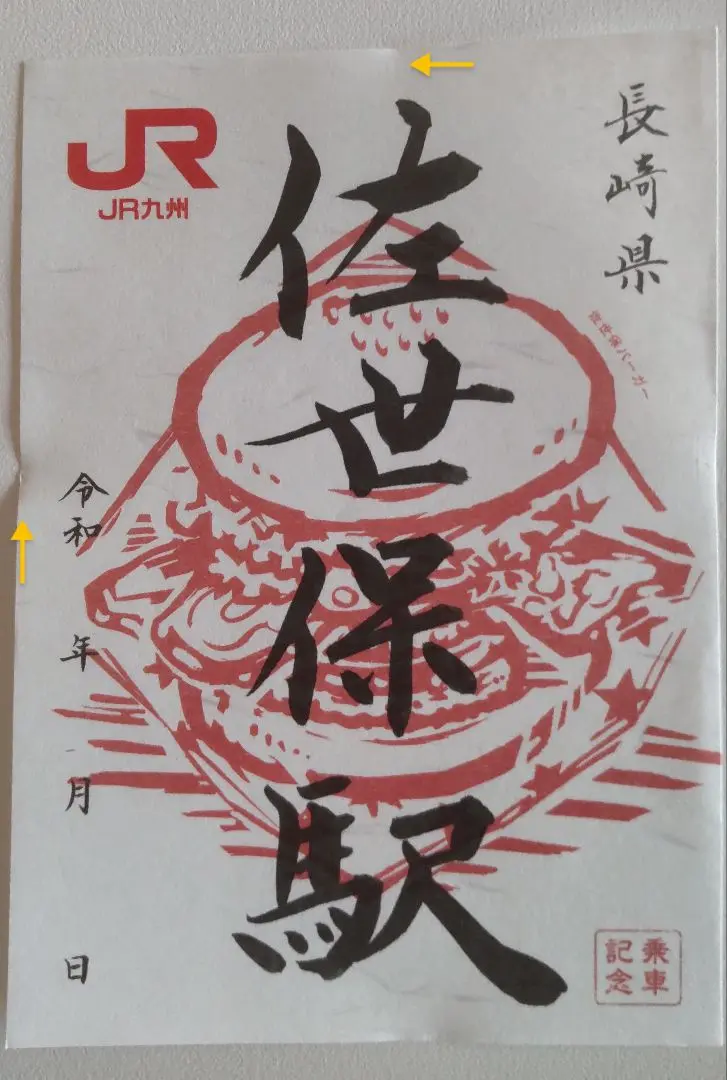 JR
JR九州
長崎県
佐世保バーガー
佐世保駅
令和 年 月 日
乗車
記念